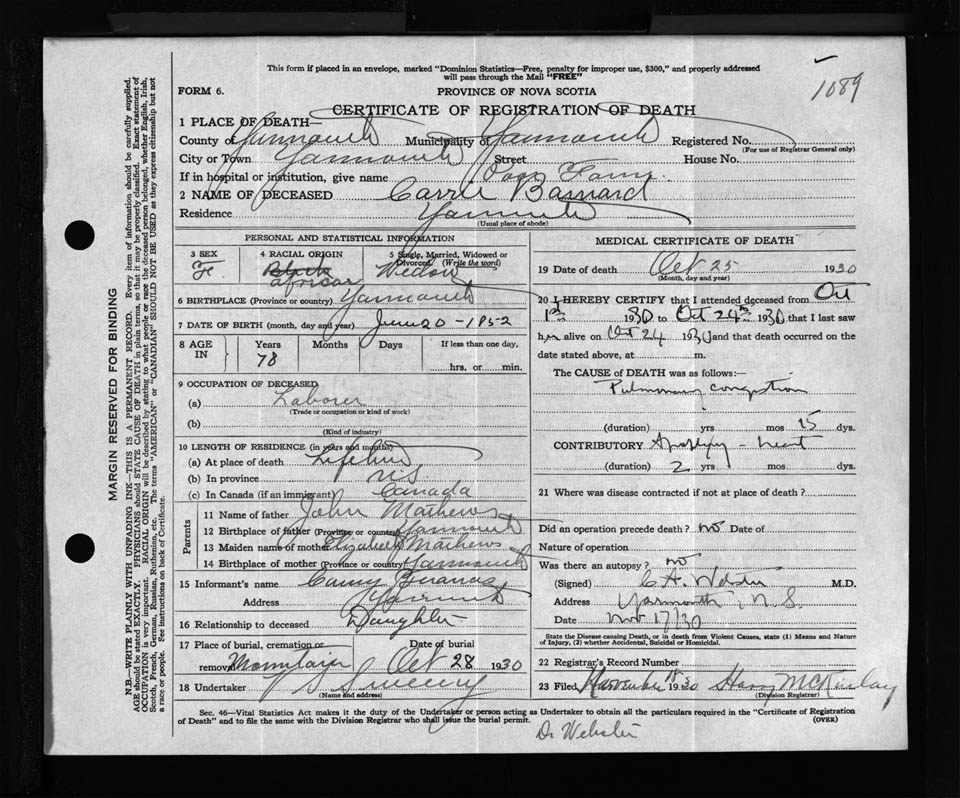 This form if placed in an envelope, marked "Dominion Statistics—Free, penalty for improper use, $300," and properly addressed
will pass through the Mail "FREE"
1089
FORM 6.
PROVINCE OF NOVA SCOTIA
CERTIFICATE OF REGISTRATION OF DEATH
1 PLACE OF DEATH—
County of Yarmouth Municipality of Yarmouth Registered No.
(For use of Registrar General only)
City or Town Yarmouth Street House No.
If in hospital or institution, give name Poor Farm.
2 NAME OF DECEASED Carrie Barnard
Residence Yarmouth
(Usual place of abode)
PERSONAL AND STATISTICAL INFORMATION
3 SEX 4 RACIAL ORIGIN 5 Single, Married, Widowed or
Divorced. (Write the word)
Fe Black African Widow
6 BIRTHPLACE (Province or country) Yarmouth
7 DATE OF BIRTH (month, day and year) June 20 - 1852
8 AGE IN Years Months Days If less than one day,
78 hrs. or min.
9 OCCUPATION OF DECEASED
(a) Laborer
(Trade or occupation or kind of work)
(b)
(Kind of industry)
10 LENGTH OF RESIDENCE (in years and months)
(a) At place of death Lifetime
(b) In province N.S
(c) In Canada (if an immigrant) Canada
Parents
11 Name of father John Mathews
12 Birthplace of father (Province or country) Yarmouth
13 Maiden name of mother Elizabeth Mathews
14 Birthplace of mother (Province or country) Yarmouth
15 Informant's name
Address Yarmouth
16 Relationship to deceased Daughter
17 Place of burial, cremation or Date of burial
removal Mountain Oct 28 1930
18 Undertaker Sweeny
MEDICAL CERTIFICATE OF DEATH
19 Date of death Oct 25 1930
(Month, day and year)
20 I HEREBY CERTIFY that I attended deceased from Oct
1st 1930 to Oct 24th 1930 that I last saw
him alive on Oct 24 1930 and that death occurred on the
date stated above, at m.
The CAUSE of DEATH was as follows:—
Pulmonary congestion
(duration) yrs mos 15 dys.
CONTRIBUTORY - heart
(duration) 2 yrs mos. dys.
21 Where was disease contracted if not at place of death?
Did an operation precede death? no Date of
Nature of operation
Was there an autopsy? no
(Signed) C A Webster M.D.
Address Yarmouth, N.S.
Date Nov 17/30
State the Disease causing Death, or in death from Violent Causes, state (1) Means and Nature
of Injury, (2) whether Accidental, Suicidal or Homicidal.
22 Registrar's Record Number
23 Filed November 18 1930 Harry McKinlay
(Division Registrar)
Sec. 46—Vital Statistics Act makes it the duty of the Undertaker or person acting as Undertaker to obtain all the particulars required in the "Certificate of Registration
of Death" and to file the same with the Division Registrar who shall issue the burial permit. (OVER)
Dr Webster
MARGIN RESERVED FOR BINDING
N.B.—WRITE PLAINLY WITH UNFADING INK—THIS IS A PERMANENT RECORD. Every item of information should be carefully supplied.
AGE should be stated EXACTLY. PHYSICIANS should STATE CAUSE OF DEATH in plain terms, so that it may be properly classified. Exact statement of
OCCUPATION is very important. RACIAL ORIGIN will be described by stating to what people or race the deceased person belonged, whether English, Irish,
Scotch, French, German, Russian, Ruthenian, etc. The terms "AMERICAN" or "CANADIAN" SHOULD NOT BE USED as they express citizenship but not
a race or people. See instructions on back of Certificate.